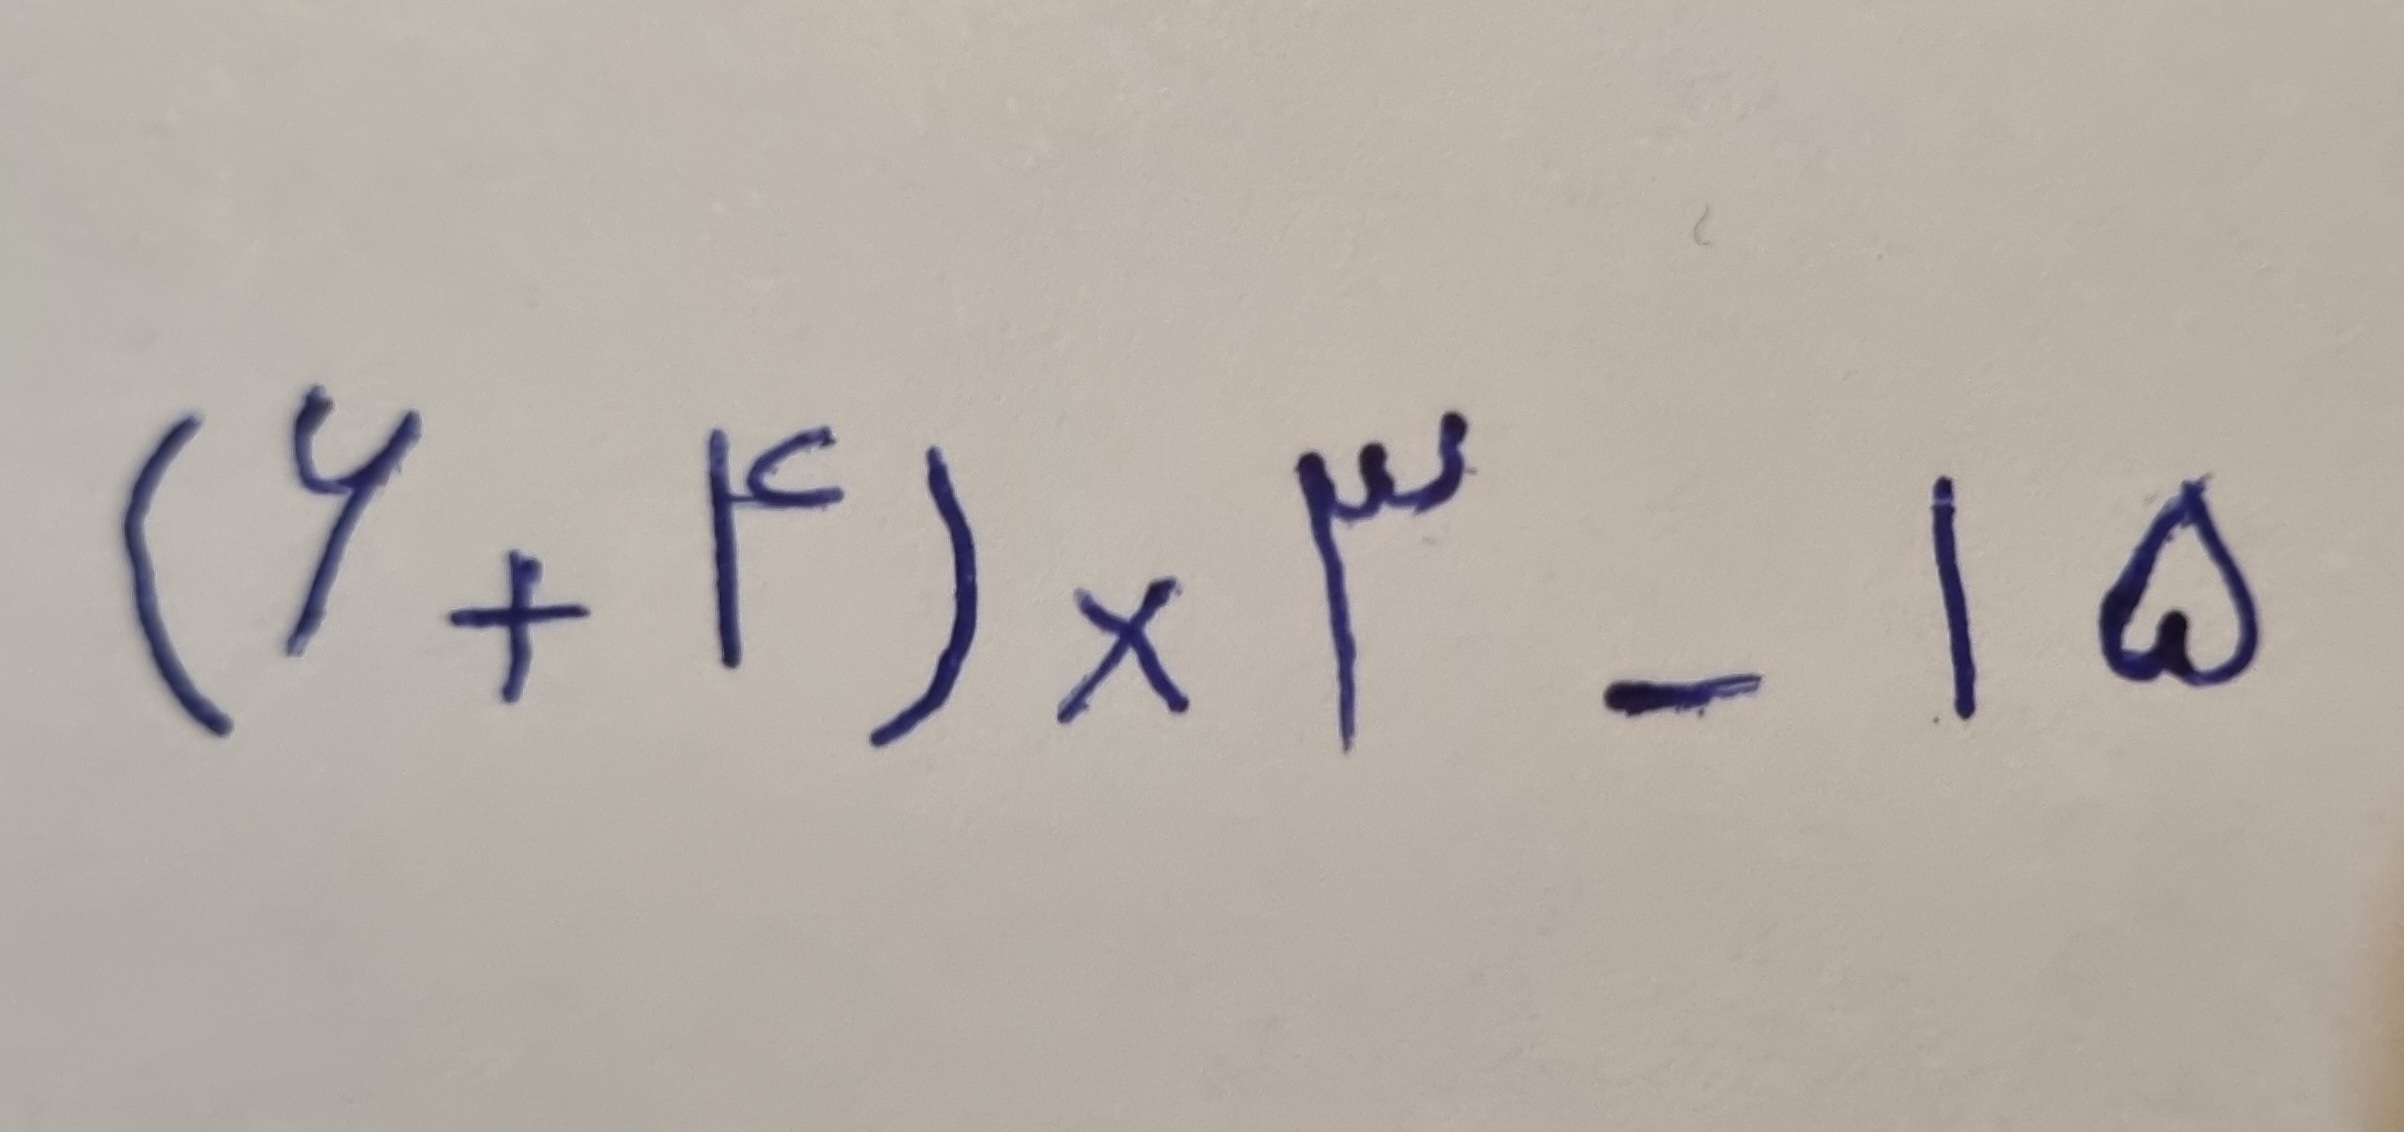 (۶+۴)×۳-۱۵